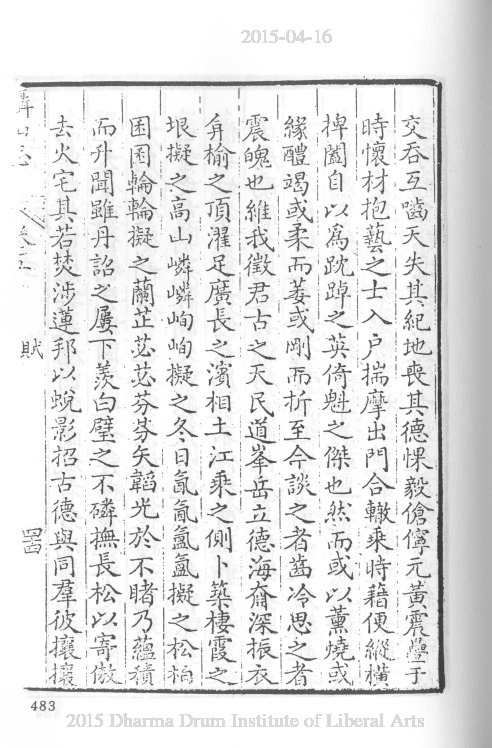 2015-04-16
交吞互嚙天失其紀地喪其德惈毅傖儜元黃震學子
時懷材抱藝之士入户揣摩出門合轍乘時藉便縱橫
捭闔自以爲踸踔之英倚魁之傑也然而或以薰燒或
緣醴竭或柔而萎或剛而折至今談之者齒冷思之者
震魄也維我徵君古之天民道峯岳立德海淵深振衣
弁榆之頂濯足廣長之濱相土江乘之側卜築棲霞之
垠擬之高山嶙嶙峋峋擬之冬日氤氤氳氳擬之松柏
囷囷輪輪擬之蘭芷苾苾芬芬矢韜光於不睹乃蘊積
而升聞雖丹詔之屢下羨白璧之不磷撫長松以寄傲
去火宅其若焚涉蓮邦以蛻影招古德與同羣彼攘攘
賦
483
2015 Dharma Drum Institute of Liberal Arts